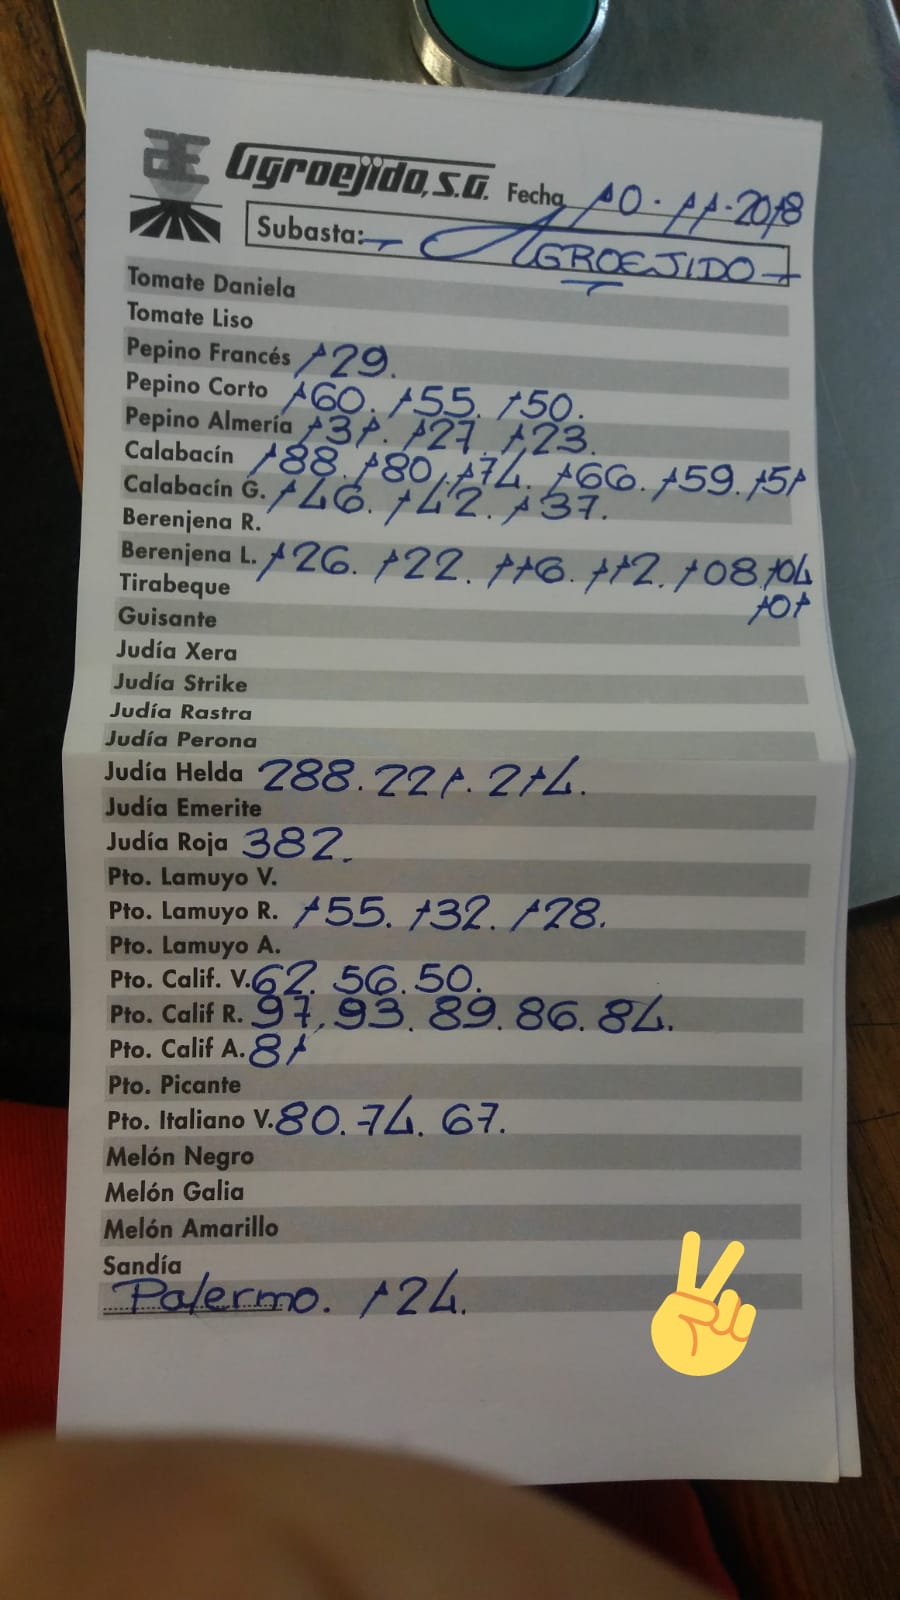 Agroejido, S.A. Fecha 10-11-2018
Subasta: AGROEJIDO
Tomate Daniela
Tomate Liso
Pepino Francés 129.
Pepino Corto 160. 155. 150.
Pepino Almería 131. 127. 123.
Calabacín 188. 180. 174. 166. 159. 151
Calabacín G. 146. 142. 137.
Berenjena R.
Berenjena L. 126. 122. 116. 112. 108. 104
101
Tirabeque
Guisante
Judía Xera
Judía Strike
Judía Rastra
Judía Perona
Judía Helda 288. 221. 214.
Judía Emerite
Judía Roja 382.
Pto. Lamuyo V.
Pto. Lamuyo R. 155. 132. 128.
Pto. Lamuyo A.
Pto. Calif. V. 62. 56. 50.
Pto. Calif R. 97. 93. 89. 86. 84.
Pto. Calif A. 81
Pto. Picante
Pto. Italiano V. 80. 74. 67.
Melón Negro
Melón Galia
Melón Amarillo
Sandía
Palermo. 124.